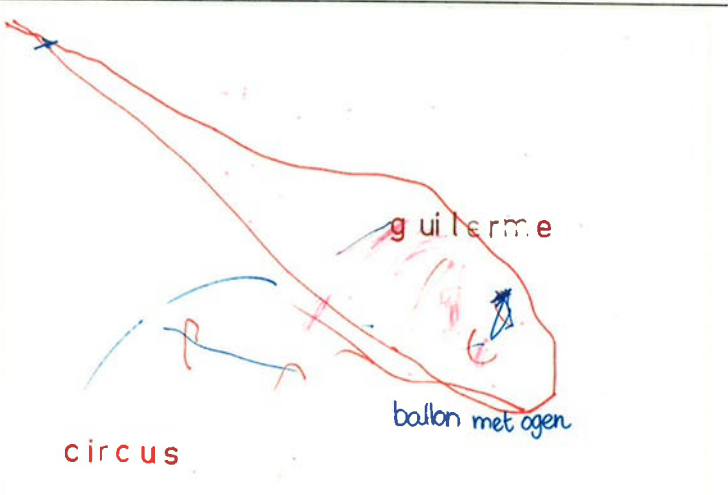 guilerme
ballon met ogen
circus